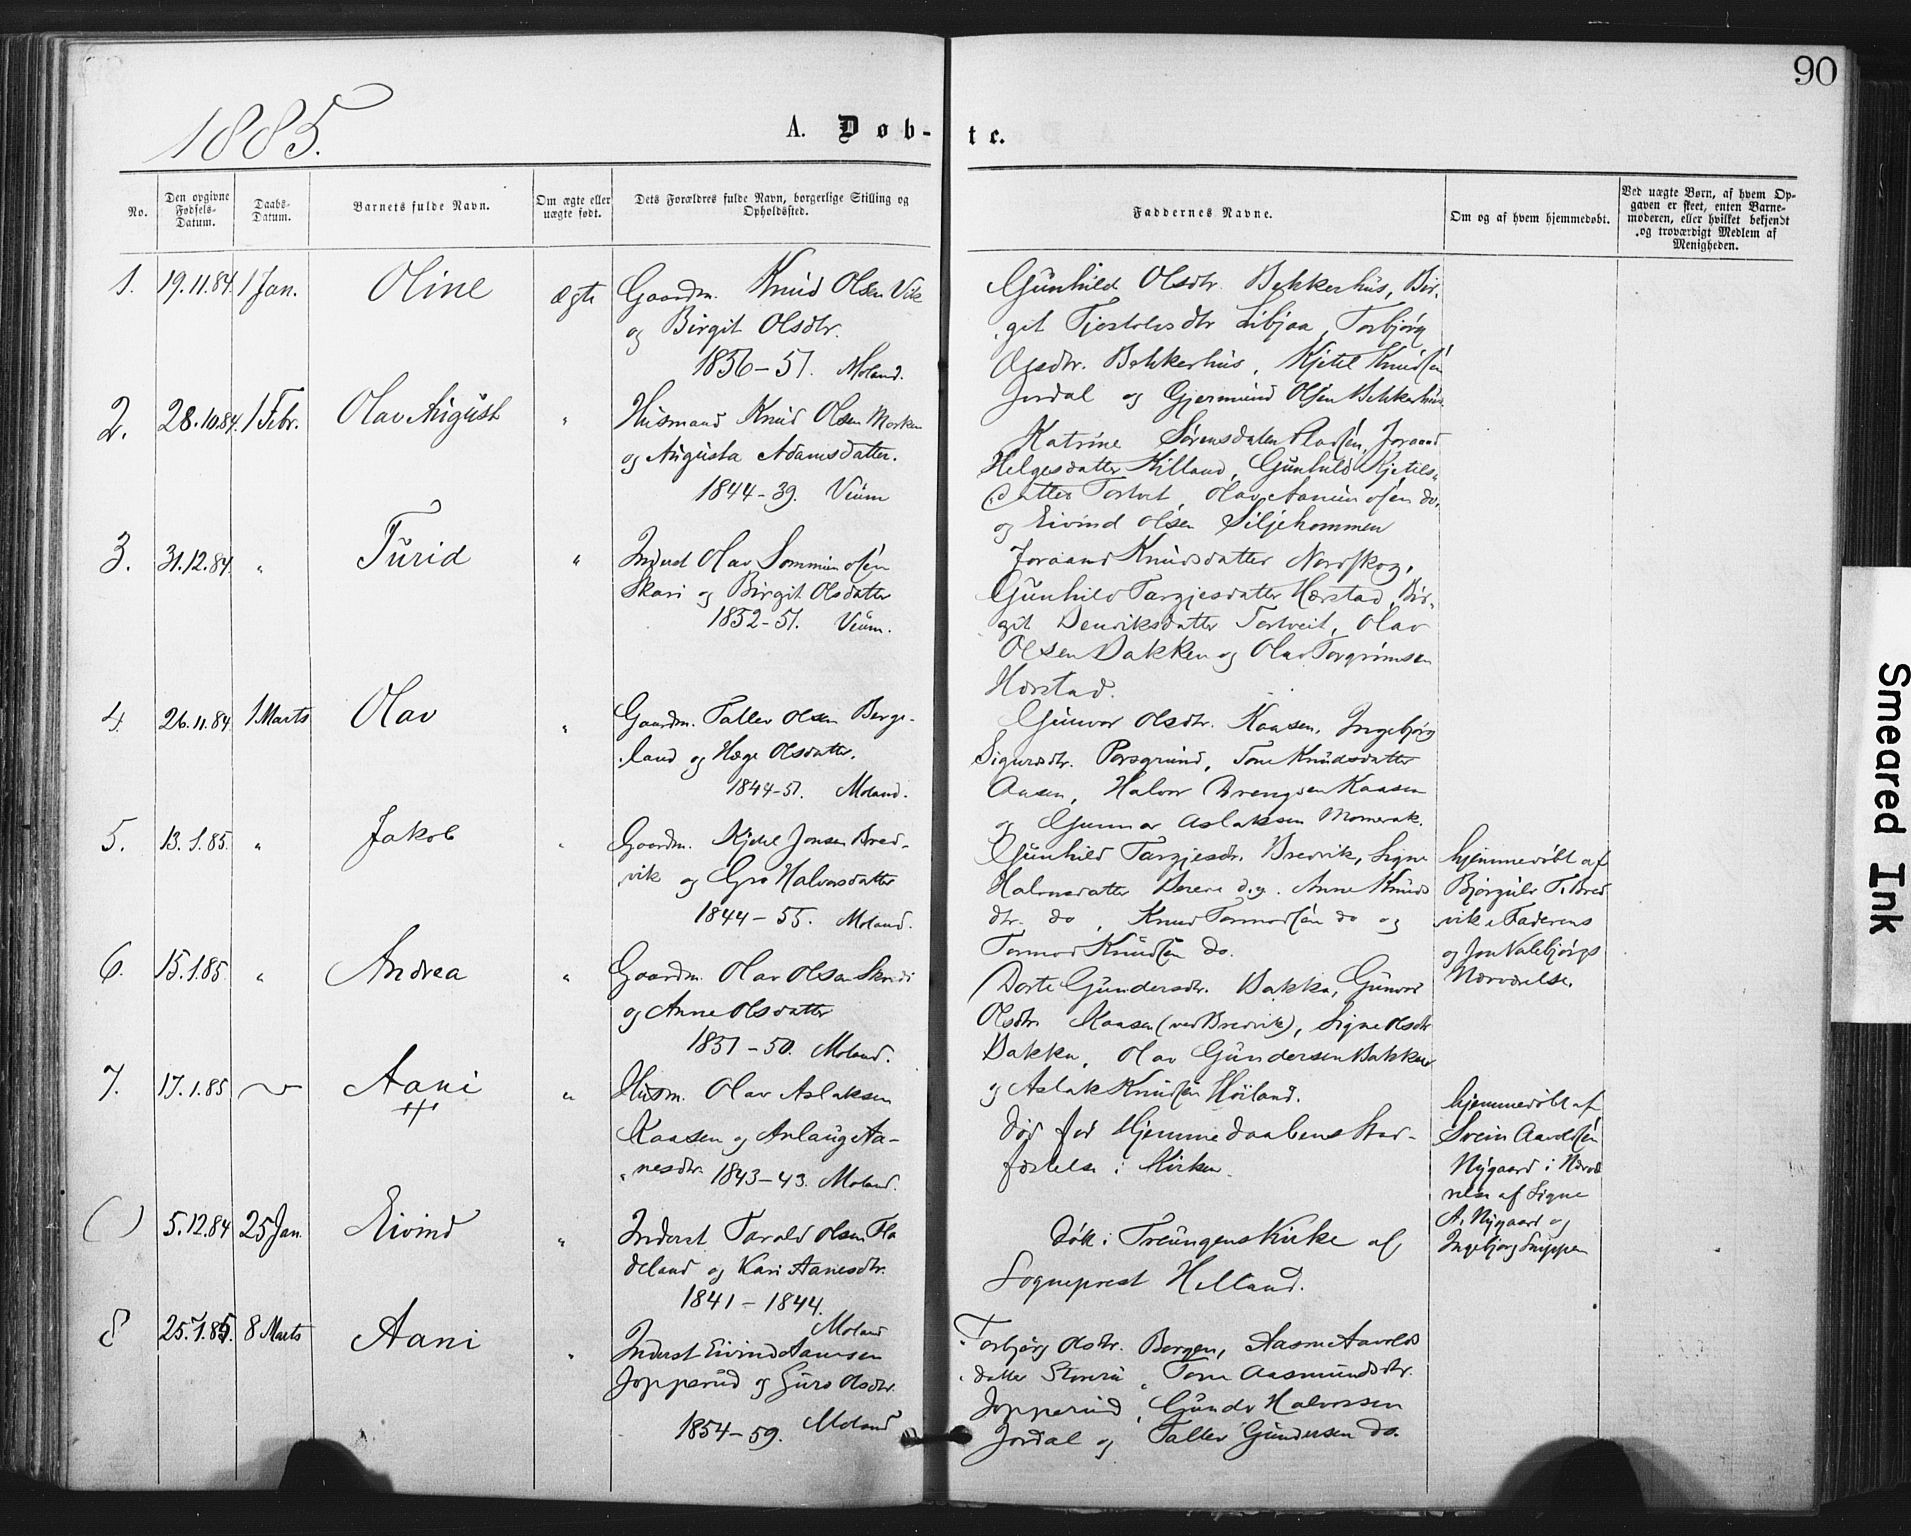 90
1885.
A. Døb-
te.
No.
Den opgivne Fødsels-Datum.
Daabs-Datum.
Barnets fulde Navn.
Om ægte eller uægte født.
Dets Forældres fulde Navn, borgerlige Stilling og Opholdssted.
Faddernes Navne.
Om og af hvem hjemmedøbt.
Ved uægte Børn, af hvem Opgaven er skeet, enten Barnemoderen, eller hvilket bekjendt og troværdigt Medlem af Menigheden.
1. 19.11.84. 1 Jan. Oline ægte
Gaardm. Knud Olsen Vik
og Birgit Olsdtr.
1856-51. Moland.
Gunhild Olsdtr. Bekkerhus, Bir-
git Tjostolvsdtr Libjaa, Torbjørg
Olsdtr. Bekkerhus, Kjetil Knudsen
Jordal og Gjermund Olsen Bekkerhus
2. 28.10.84. 1 Febr. Olav August "
Husmand Knud Olsen Morken
og Augusta Adamsdatter.
1844-39. Veum
Katrine Sørensdatter Joraand
Helgesdatter Killand, Gunhild Kjetils-
datter Tortveit, Olav do,
og Eivind Olsen Siljekommen
3. 31.12.84. " Turid "
Inderst Olav Sommundsen
Skari og Birgit Olsdatter
1852-51. Veum.
Joraand Knudsdatter Nordskog,
Gunhild Targjesdatter Hærstad, Bir-
git Henriksdatter Tortveit, Olav
Olsen Bakken og Olav Torgrimsen
Hærstad.
4. 26.11.84. 1 Marts Olav "
Gaardm. Tallev Olsen Berge-
land og Hæge Olsdatter.
1844-51. Moland.
Gunvor Olsdtr. Kaasen, Ingebjørg
Sigurdsdtr. Porsgrund, Tone Knudsdatter
Aasen, Halvor Drengsen Kaasen
og Gunnar Aslaksen Momrak.
5. 13.1.85. " Jakob "
Gaardm. Kjetil Jonsen Bred-
vik og Gro Halvorsdatter
1844-55. Moland.
Gunhild Targjesdtr. Bredvik, Signe
Halvorsdatter Anne Knuds
dtr. do, Knud Tormodsen do og
Tormod Knudsen do.
hjemmedøbt af
Bjørgulv T. Bred
vik i Faderens
og Jon Valebjørgs
Nærværelse.
6. 15.1.85. " Andrea "
Gaardm. Olav Olsen
og Anne Olsdatter
1851-50. Moland.
Dorte Gundersdtr. Bakka, Gunvor
Olsdtr. Kaasen (ved Bredvik), Signe Olsdtr
Bakka, Olav Gundersen Bakka
og Aslak Knudsen Høiland.
7. 17.1.85 Aani "
Husm. Olav Aslaksen
Kaasen og Anlaug Aa-
nesdtr. 1843-43. Moland.
Død før Hjemmedaabens Stad-
fæstelse i Kirken.
hjemmedøbt af
Svein Aavoldsen
Nygaard i Nærvæ
relse af Signe
A. Nygaard og
Ingebjørg
( ) 5.12.84 25 Jan. Eivind "
Inderst Tarald Olsen Fla
deland og Kari Aanesdtr.
1841-1844.
Moland
Døbt i Treungens Kirke af
Sogneprest Helland.
8 25.1.85. 8 Marts Aani "
Inderst Eivind Aanesen
Jopperud og Guro Olsdtr.
1854-59. Moland
Torbjørg Olsdtr. Borgen, Aasne Aavolds
datter Tone Aasmundsdtr.
Jopperud, Gundv Halvorsen
Jordal og Tallev Gundersen do.
Smeared Ink